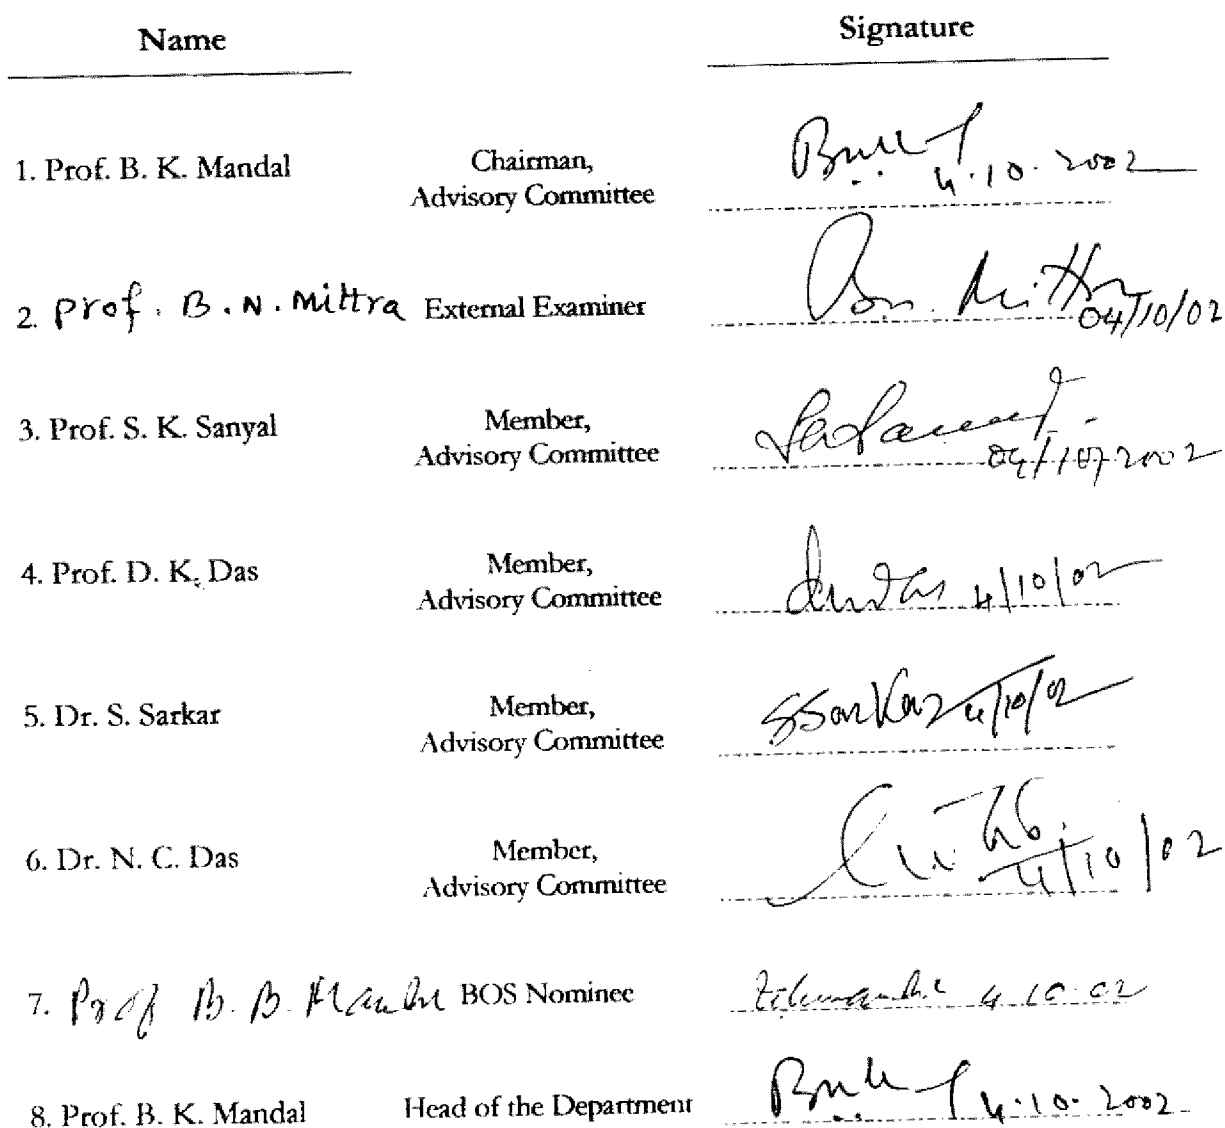 Name Signature
1. Prof. B. K. Mandal Chairman,
Advisory Committee 4.10.2002
2. Prof. B.N. Mittra External Examiner Bn. Mittra
04/10/02
3. Prof. S. K. Sanyal Member,
Advisory Committee 04/10/2002
4. Prof. D. K. Das Member,
Advisory Committee 4/10/02
5. Dr. S. Sarkar Member, SSarkar 4/10/02
Advisory Committee
6. Dr. N. C. Das Member,
Advisory Committee 4/10/02
7. Prof B. B. BOS Nominee 4.10.02
8. Prof. B. K. Mandal Head of the Department 4.10.2002